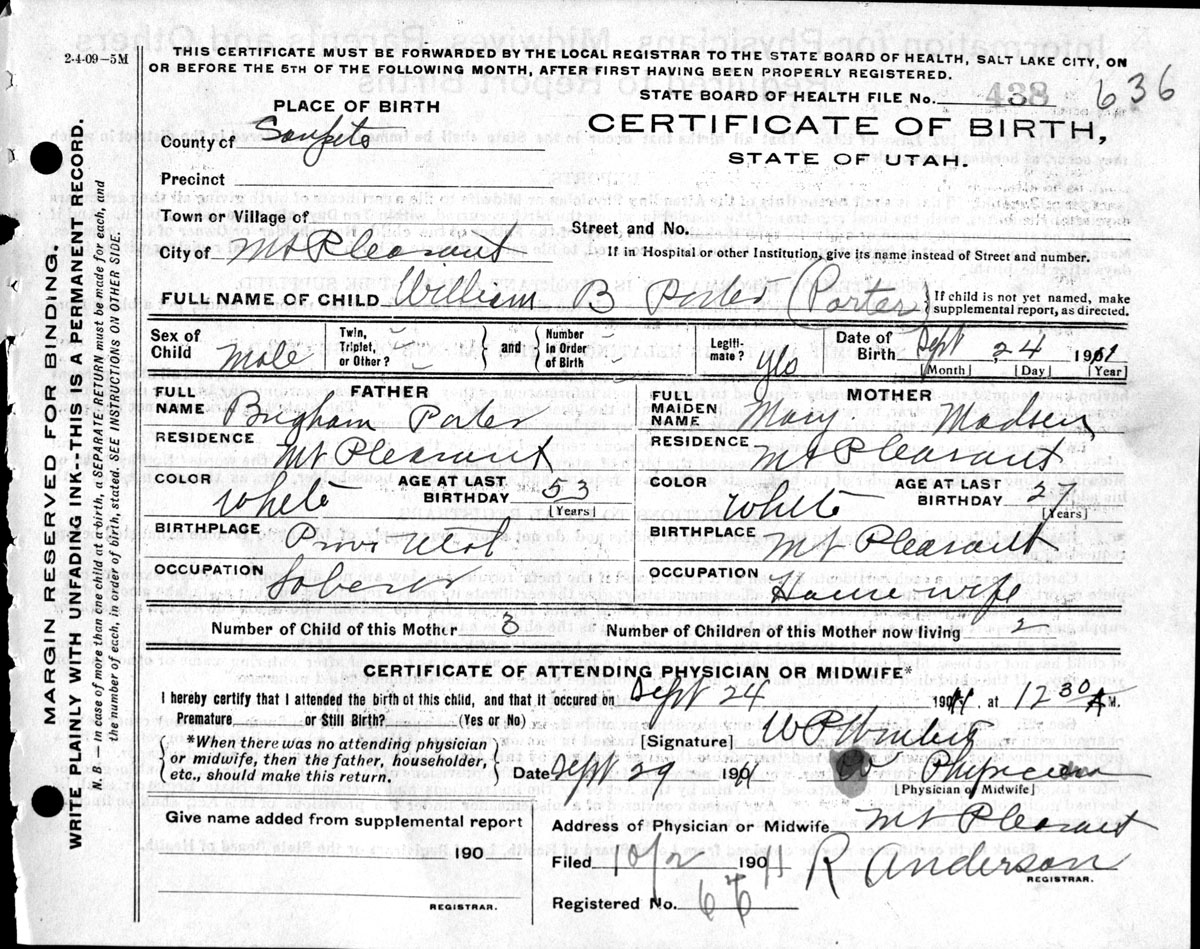 2-4-09—5M
THIS CERTIFICATE MUST BE FORWARDED BY THE LOCAL REGISTRAR TO THE STATE BOARD OF HEALTH, SALT LAKE CITY, ON
OR BEFORE THE 5TH OF THE FOLLOWING MONTH, AFTER FIRST HAVING BEEN PROPERLY REGISTERED.
STATE BOARD OF HEALTH FILE No. 438 636
PLACE OF BIRTH
CERTIFICATE OF BIRTH,
STATE OF UTAH.
County of Sanpete
Precinct
Town or Village of
Street, and No.
City of Mt Pleasant
If in Hospital or other Institution, give its name instead of Street and number.
FULL NAME OF CHILD William B Porter (Porter)
{If child is not yet named, make
supplemental report, as directed.
Sex of Child Male
Twin, Triplet, or Other?
and
Number in Order of Birth
Legiti- mate? yes
Date of Birth Sept 24 19
[Month] [Day] [Year]
FATHER
FULL NAME Brigham Porter
RESIDENCE Mt Pleasant
COLOR White AGE AT LAST BIRTHDAY 53 [Years]
BIRTHPLACE Provo Utah
OCCUPATION Laborer
MOTHER
FULL MAIDEN NAME Mary Madsen
RESIDENCE Mt Pleasant
COLOR White AGE AT LAST BIRTHDAY [Years]
BIRTHPLACE Mt Pleasant
OCCUPATION Housewife
Number of Child of this Mother 3 Number of Children of this Mother now living 2
CERTIFICATE OF ATTENDING PHYSICIAN OR MIDWIFE*
I hereby certify that I attended the birth of this child, and that it occured on Sept 24 19 at 12 30 A M.
Premature or Still Birth? (Yes or No)
{*When there was no attending physician
or midwife, then the father, householder,
etc., should make this return.}
[Signature] W P
Date Sept 29 19 Physician
[Physician or Midwife]
Give name added from supplemental report
190
REGISTRAR.
Address of Physician or Midwife Mt Pleasant
Filed 10/2 190 R Anderson
REGISTRAR.
Registered No. 66
MARGIN RESERVED FOR BINDING.
WRITE PLAINLY WITH UNFADING INK--THIS IS A PERMANENT RECORD.
N. B.—In case of more than one child at a birth, a SEPARATE RETURN must be made for each, and
the number of each, in order of birth, stated. SEE INSTRUCTIONS ON OTHER SIDE.